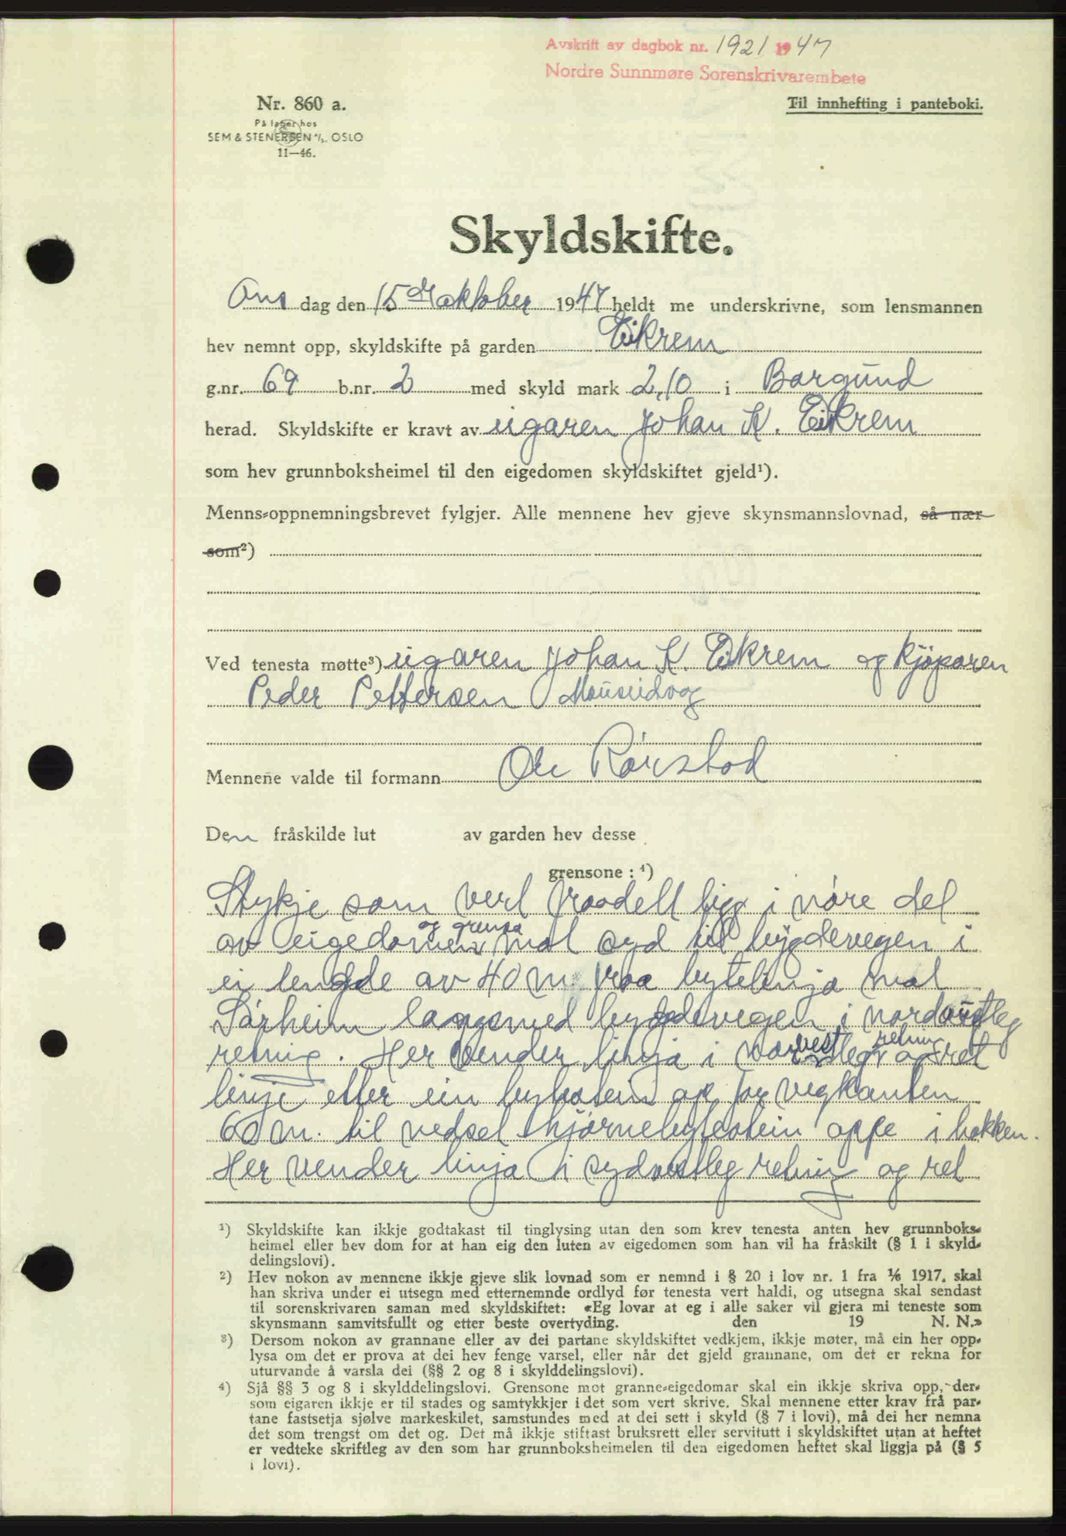 Avskrift av dagbok nr. 1921 1947
Nordre Sunnmøre Sorenskrivarembete
Nr. 860 a.
På lager hos
SEM & STENERSEN A/S, OSLO
11—46.
Til innhefting i panteboki.
Skyldskifte.
Ons dag den 15de oktober 1947 heldt me underskrivne, som lensmannen
hev nemnt opp, skyldskifte på garden Eikrem
g.nr. 69 b.nr. 2 med skyld mark 2,10 i Borgund
herad. Skyldskifte er kravt av eigaren Johan K. Eikrem
som hev grunnboksheimel til den eigedomen skyldskiftet gjeld¹).
Menns-oppnemningsbrevet fylgjer. Alle mennene hev gjeve skynsmannslovnad, så nær
som²)
Ved tenesta møtte³) eigaren Johan K. Eikrem og kjøparen
Peder Pettersen Mauseidvog
Mennene valde til formann Ole Rørstad
Den fråskilde lut av garden hev desse
grensone: ⁴)
Stykje som vert fraadelt ligg i nøre del
av eigedomen og grensa mot syd til bygdevegen i
ei lengde av 40 m. fraa bytelinja mot
Sørheim langsmed bygdevegen i nordaustleg
retning. Her vender linja i nordvestleg retning og ret
linje etter ein bytestein op for vegkanten
60 m. til nedset hjørnebytestein oppe i bakken.
Her vender linja i sydvestleg retning og ret
¹) Skyldskifte kan ikkje godtakast til tinglysing utan den som krev tenesta anten hev grunnboks-
heimel eller hev dom for at han eig den luten av eigedomen som han vil ha fråskilt (§ 1 i skyld-
delingslovi).
²) Hev nokon av mennene ikkje gjeve slik lovnad som er nemnd i § 20 i lov nr. 1 fra ⅙ 1917, skal
han skriva under ei utsegn med etternemnde ordlyd før tenesta vert haldi, og utsegna skal sendast
til sorenskrivaren saman med skyldskiftet: «Eg lovar at eg i alle saker vil gjera mi teneste som
skynsmann samvitsfullt og etter beste overtyding. den 19 N. N.»
³) Dersom nokon av grannane eller av dei partane skyldskiftet vedkjem, ikkje møter, må ein her opp-
lysa om det er prova at dei hev fenge varsel, eller når det gjeld grannane, om det er rekna for
uturvande å varsla dei (§§ 2 og 8 i skylddelingslovi).
⁴) Sjå §§ 3 og 8 i skylddelingslovi. Grensone mot granne-eigedomar skal ein ikkje skriva opp, der-
som eigaren ikkje er til stades og samtykkjer i det som vert skrive. Skal mennene etter krav frå par-
tane fastsetja sjølve markeskilet, samstundes med at dei sett i skyld (§ 7 i lovi), må dei her nemna
det som trengst om det og. Det må ikkje stiftast bruksrett eller servitutt i skyldskiftet utan at heftet
er vedteke skriftleg av den som har grunnboksheimelen til den eigedomen heftet skal liggja på (§ 5
i lovi).